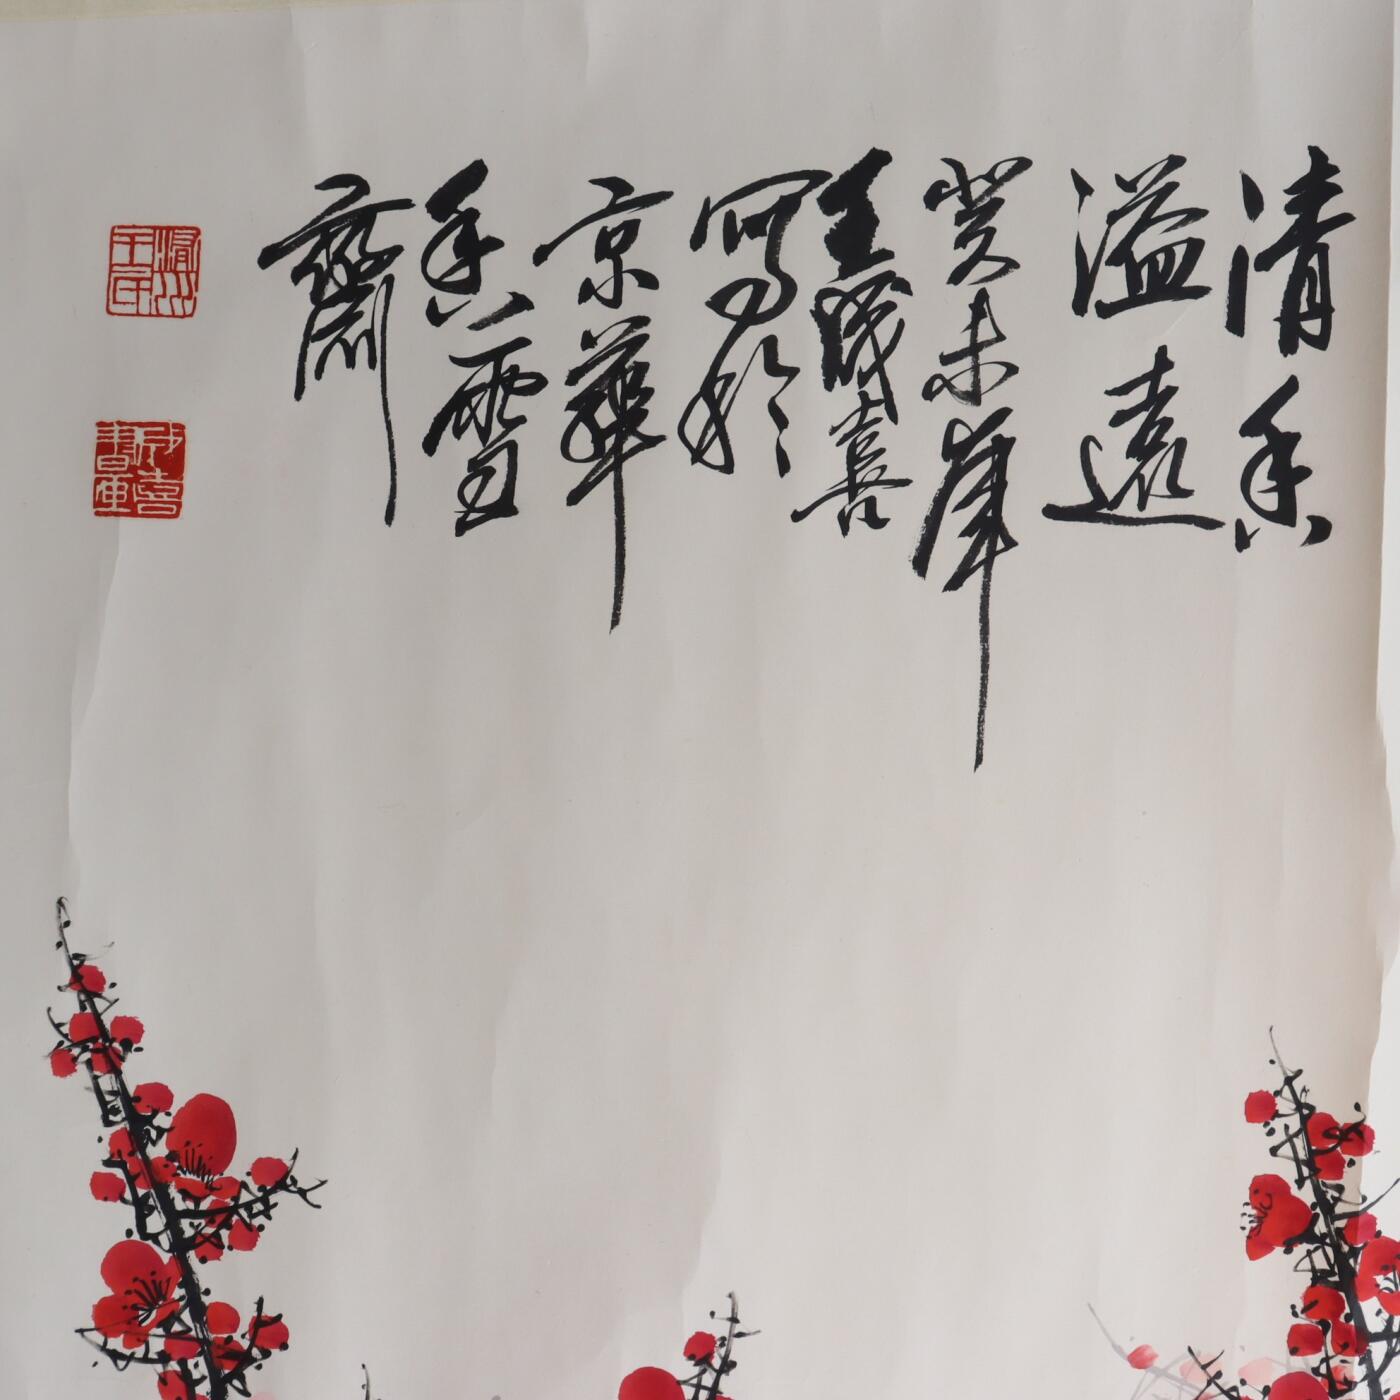 清香
溢遠
癸未年
王成喜
寫於
京華
香雪
齋
成喜
書画